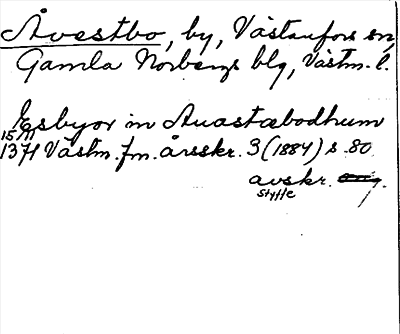 Åvestbo, by, Västanfors sn,
Gamla Norbergs blg, Västm. l.
Esbyor in Auastæbodhum
15/11
1371 Västm. fm. årsskr. 3 (1884) s. 80
avskr. orig.
Styffe